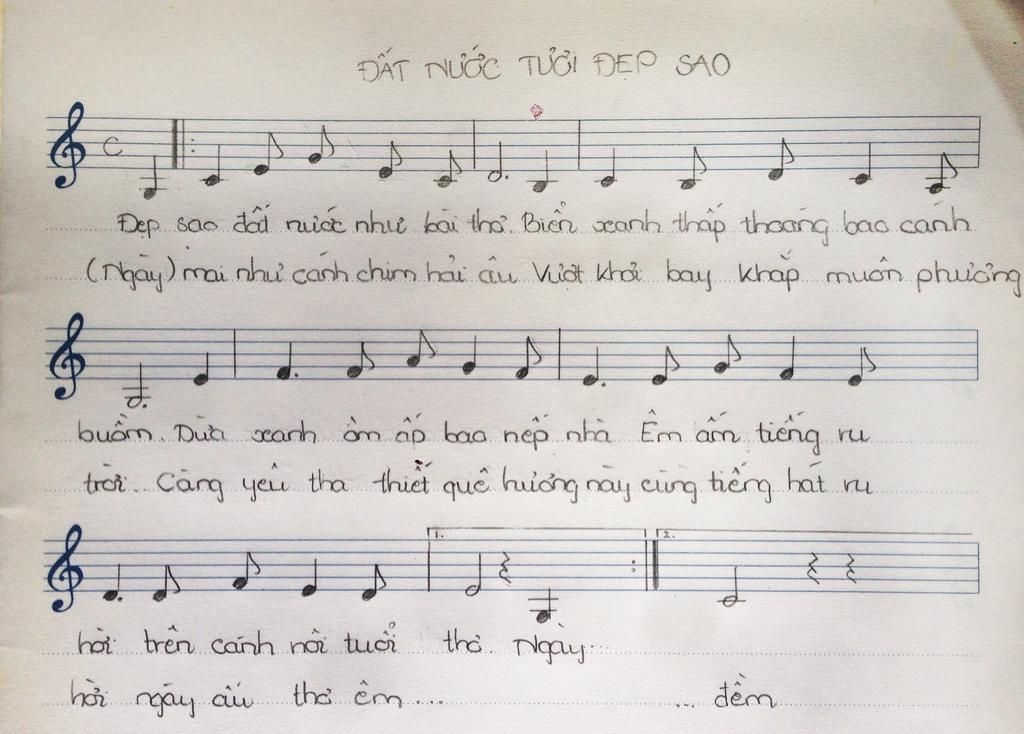 ĐẤT NƯỚC TƯƠI ĐẸP SAO
C
Đẹp sao đất nước như bài thơ. Biển xanh thấp thoáng bao cánh
(Ngày) mai như cánh chim hải âu Vượt khơi bay khắp muôn phương
buồm. Dừa xanh ôm ấp bao nếp nhà Êm ấm tiếng ru
trời. Càng yêu tha thiết quê hương này cùng tiếng hát ru
1. 2.
hời trên cánh nôi tuổi thơ. Ngày...
hời ngày ấu thơ êm... ... đềm